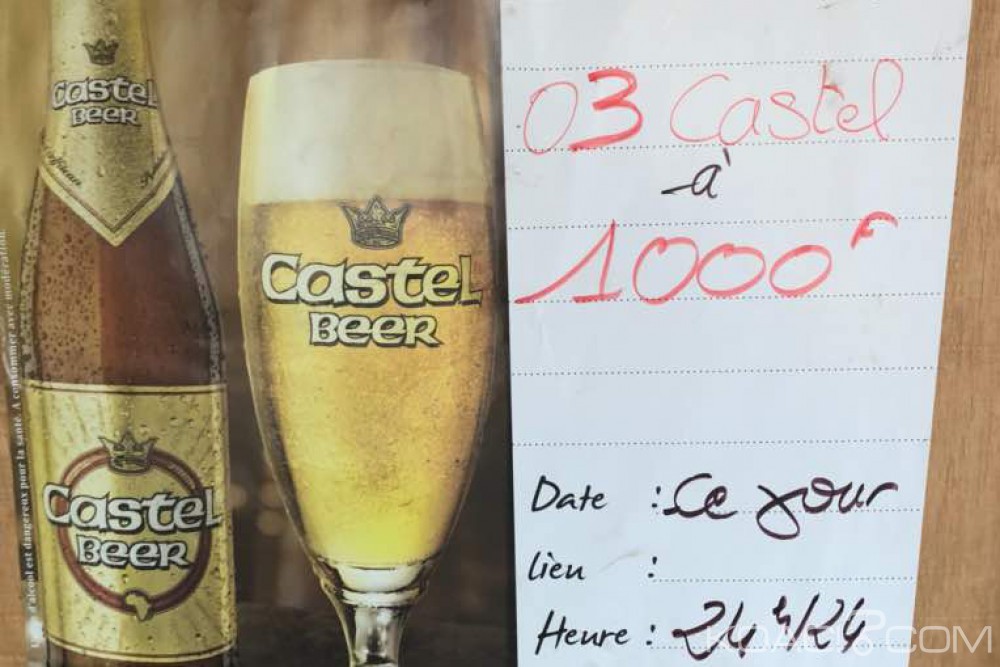 Castel
BEER
Castel
BEER
Castel
BEER
d'alcool est dangereux pour la santé. A consommer avec modération.
03 Castel
à
1000F
Date : Ce jour
lieu :
Heure : 24h/24
KOACI.COM